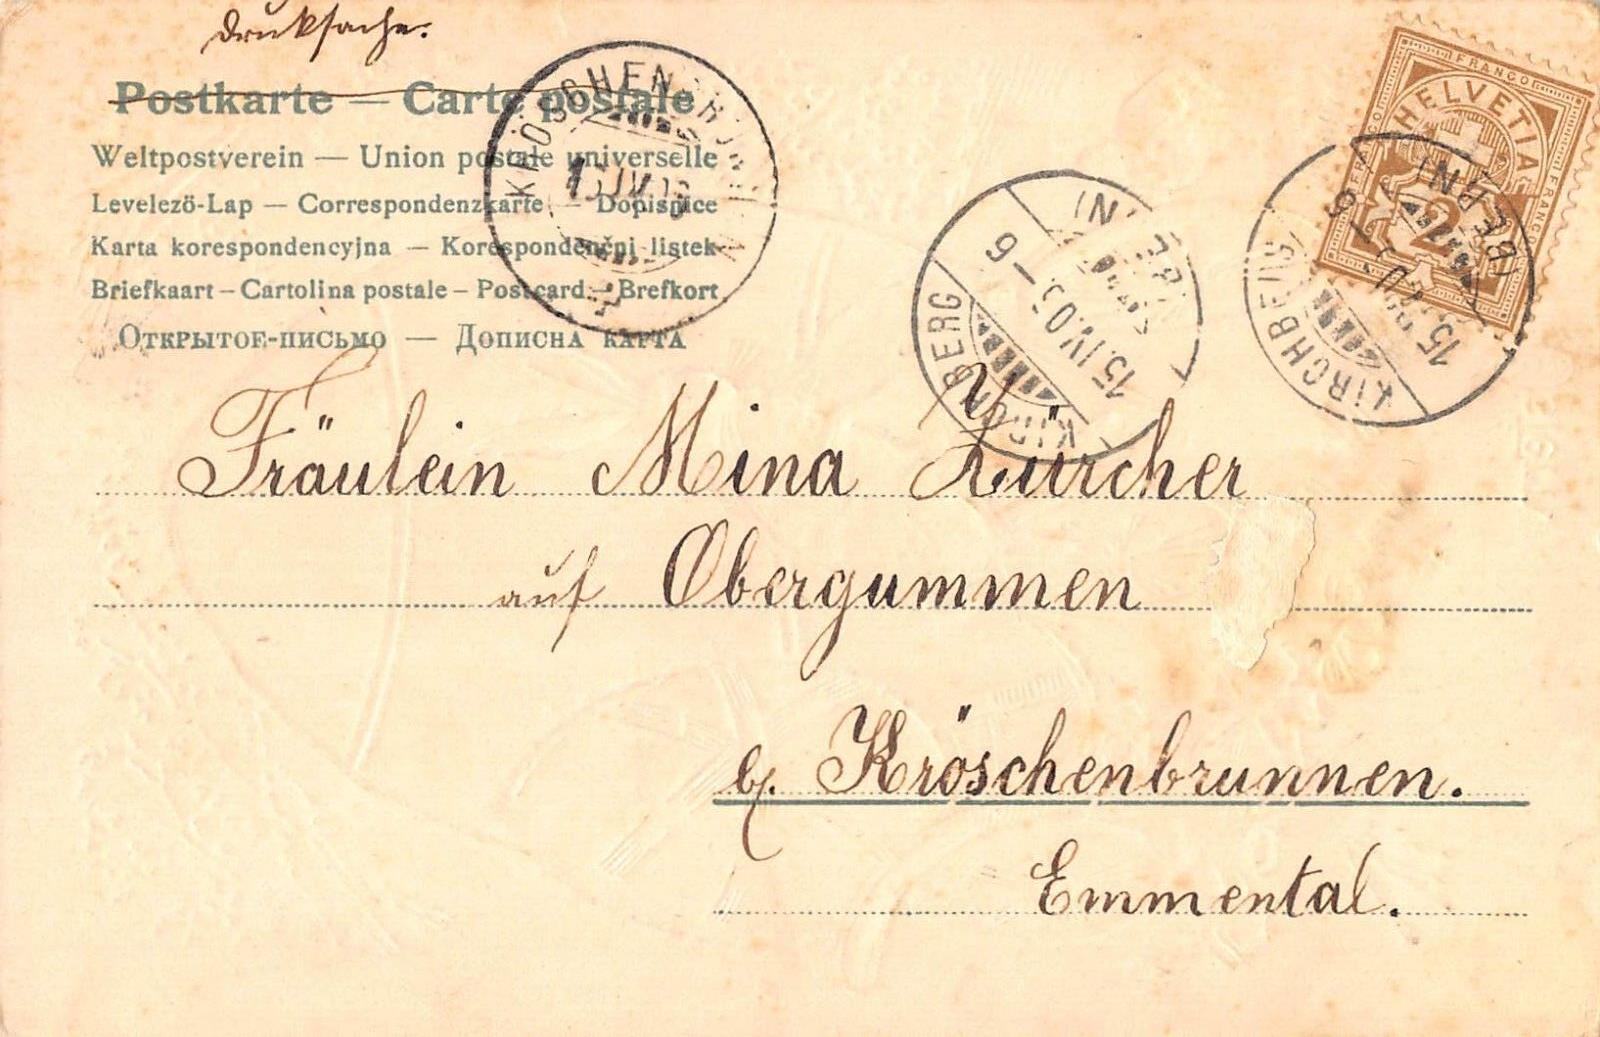 Druksache.
Postkarte — Carte postale
Weltpostverein — Union postale universelle
Levelezö-Lap — Correspondenzkarte — Dopisnice
Karta korespondencyjna — Korespondenčni listek
Briefkaart – Cartolina postale – Postcard – Brefkort
Открытое-письмо — Дописна карта
KRÖSCHENBRUNNEN
KIRCHBERG
15.IV.05
6
FRANCO
HELVETIA
FRANCO
2
KIRCHBERG
15
Fräulein Mina Zürcher
auf Obergummen
b. Kröschenbrunnen.
Emmental.